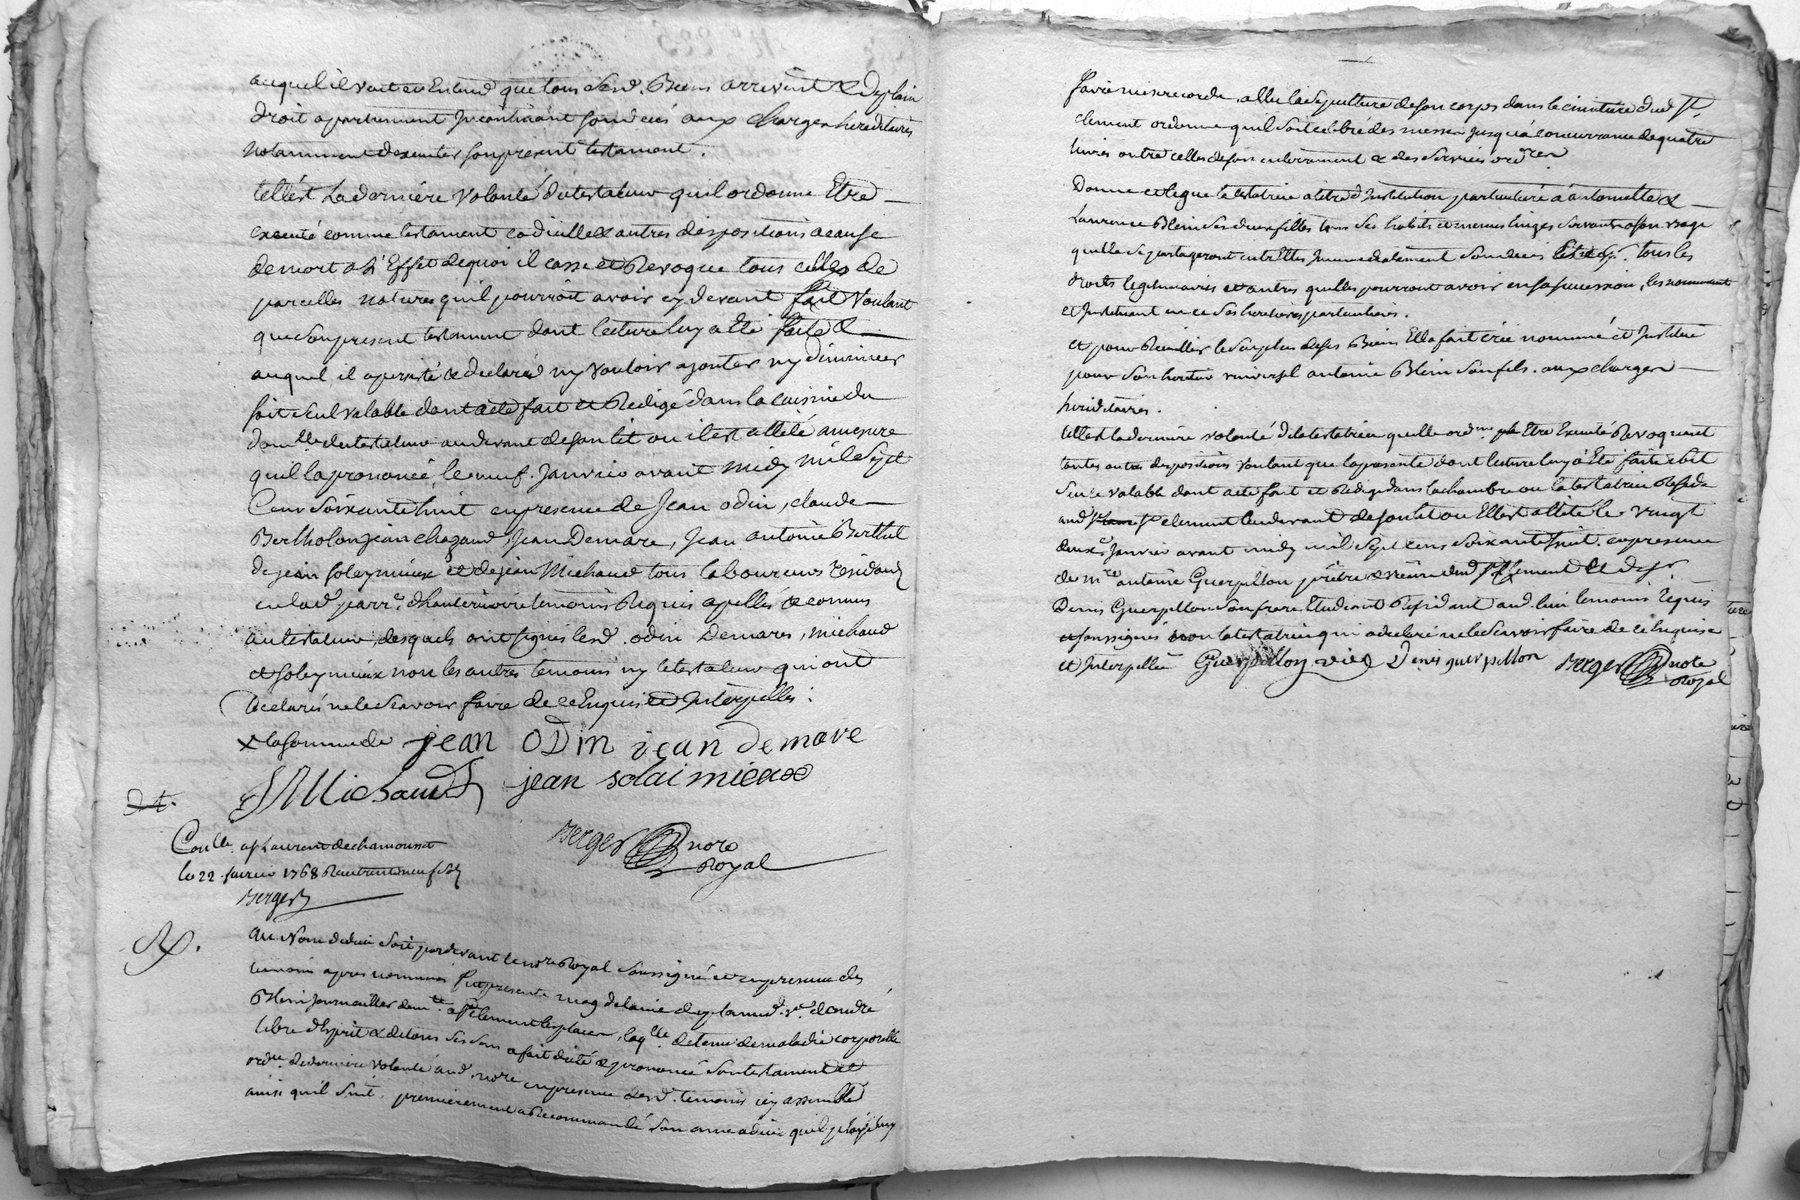 auquel il veut et Entend que tous sesd. Biens arrivent & de plain
droit apartiennent Incontinant son décès aux charges hereditaires
notamment dexecuter son present testament.
telle est La derniére volonté du testateur quil ordonne Etre
executé comme testament codicille & autres dispositions a cause
de mort a L'Effet dequoi il casse et Revoque tous celles de
pareilles natures quil pourroit avoir cy devant fait Voulant
que son present testament dont lecture luy a Eté faite &
auquel il a persisté & declaré ny vouloir ajouter ny diminuer
soit seul valable dont acte fait et Redigé dans la cuisine du
domlle. du testateur au devant de son lit ou il est allité a mesure
quil la prononcé, le neuf. Janvier avant midy mil sept
Cent soixante huit en presence de Jean odin, claude
Bertholon jean chazaud, Jean Demare, Jean antoine Berthet
de jean soleymieux et de jean Michaud tous laboureurs résidants
en lad. parr.e d'hauterivoire temoins Requis apellés & connus
au testateur, desquels ont signés lesd. odin Demares, michaud
et soleymieux non les autres temoins ny le testateur qui ont
declarés ne le sçavoir faire de ce Enquis et Interpellés.
& la somme de jean ODin jean demare
J Michaud jean solaimieux
Berger nore
Royal
Con.lle a st Laurent de chamousset
le 22. janvier 1768 Reçu trente neuf s.
Berger
Au Nom de dieu soit pardevant le nore Royal soussigné et en presence des
temoins apres nommés fut presente magdelaine desplanus d. v.e d'andré
Blein journaillier dem.te a st Clement les places, laq.lle detenue de maladie corporelle
libre d'Esprit & de tous ses sens a fait dicté & prononcé son testament et
ord.ce de derniere volonté aud. nore en presence desd. temoins icy assemblés
ainsi quil suit. premierement a Recommandé son ame a dieu quil plaise luy
faire misericorde, allu la sepulture de son corps dans le cimetiere dud. st.
clement ordonne quil soit célébré des messes jusqua concurrance de quatre
livres outre celles de son enterrement & des services ord.res
Donne et legue la testatrice a titre d'Institution particuliere a antoinette &
Laurence Blein ses deux filles tous ses habits et menus linges servants a son usage
quelle se partageront entr'elles Immediatement son deces tous les
droits legitimaires et autres quelles pourront avoir en sa succession, les nommant
et Instituant en ce ses heritieres particulieres.
et pour Recueillir le surplus de ses Biens Elle a fait créé nommé et Institué
pour son heritier universel antoine Blein son fils. aux charges
hereditaires.
telle est la derniere volonté de la testatrice quelle ordonne Etre Executé Revoquant
toutes autres dispositions voulant que la presente dont lecture luy a Eté faite soit
seule valable dont acte fait et Redigé dans la chambre ou la testatrice Reside
aud. st clement au devant de son lit ou Elle est allitée le vingt
deux. Janvier avant midy mil sept cens soixante huit. en presence
de mre antoine Guerpillon prêtre & vicaire dud. st Clement et de sr
Denis Guerpillon son frere Etudiant Residant aud. lieu temoins requis
et soussignés non la testatrice qui a declaré ne le sçavoir faire de ce Enquise
et Interpellée Guerpillon vic. Denis guerpillon Berger nore
Royal